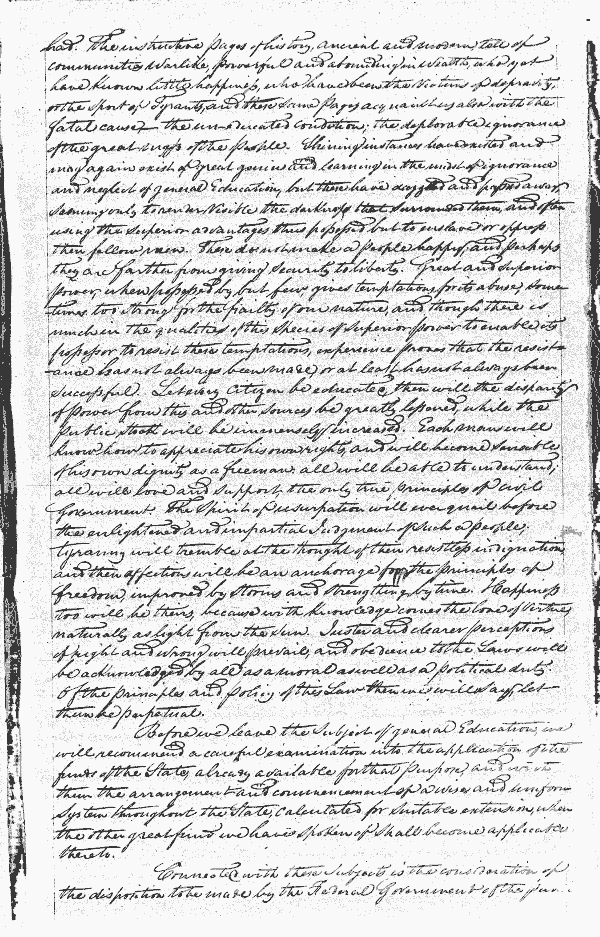 had. The instructive pages of history, ancient and modern, tell of
communities warlike, powerful and abounding in wealth, who yet
have known little happiness, who have been the victims of depravity,
or the sport of Tyrants, and these same pages acquaint us also with the
fatal cause, the un-educated condition; the deplorable ignorance
of the great mass of the People. Shining instances have existed and
may again exist of great genius and learning in the midst of ignorance
and neglect of general Education, but these have dazzled and passed away
seeming only to render visible the darkness that surrounded them, and often
using the superior advantages thus possessed but to enslave or oppress
their fellow men. These do not make a People happy, and perhaps
they are farther from giving security to liberty. Great and superior
power, when possessed by but few gives temptations for its abuse, some
times too strong for the frailty of our nature, and though there is
much in the qualities of this species of superior power to enable its
possessor to resist these temptations, experience proves that the resist-
ance has not always been made, or at least has not always been
successful. Let every Citizen be educated, then will the disparity
of power from this and other sources be greatly lessened, while the
Public stock will be immensely increased. Each man will
know how to appreciate his own rights, and will become sensible
of his own dignity as a freeman, all will be able to understand;
all will love and support, the only true, principles of civil
Government. The Spirit of usurpation will ever quail before
the enlightened and impartial Judgment of such a people;
tyranny will tremble at the thought of their resistless indignation,
and their affections will be an anchorage for the Principles of
freedom, improved by storms and strengthened by time. Happiness
too will be theirs, because with knowledge comes the love of virtue
naturally, as light from the sun. Juster and clearer perceptions
of right and wrong will prevail, and obedience to the Laws will
be acknowledged by all as a moral as well as a political duty.
Of the principles and policy of this Law then we will say, let
them be perpetual.
Before we leave the subject of general Education, we
will recommend a careful examination into the application of the
funds of the State, already available for that purpose, and with
them the arrangement and commencement of a wise and uniform
system throughout the State, calculated for suitable extension, when
the other great fund we have spoken of shall become applicable
thereto.
Connected with these subjects is the consideration of
the disposition to be made by the Federal Government of the